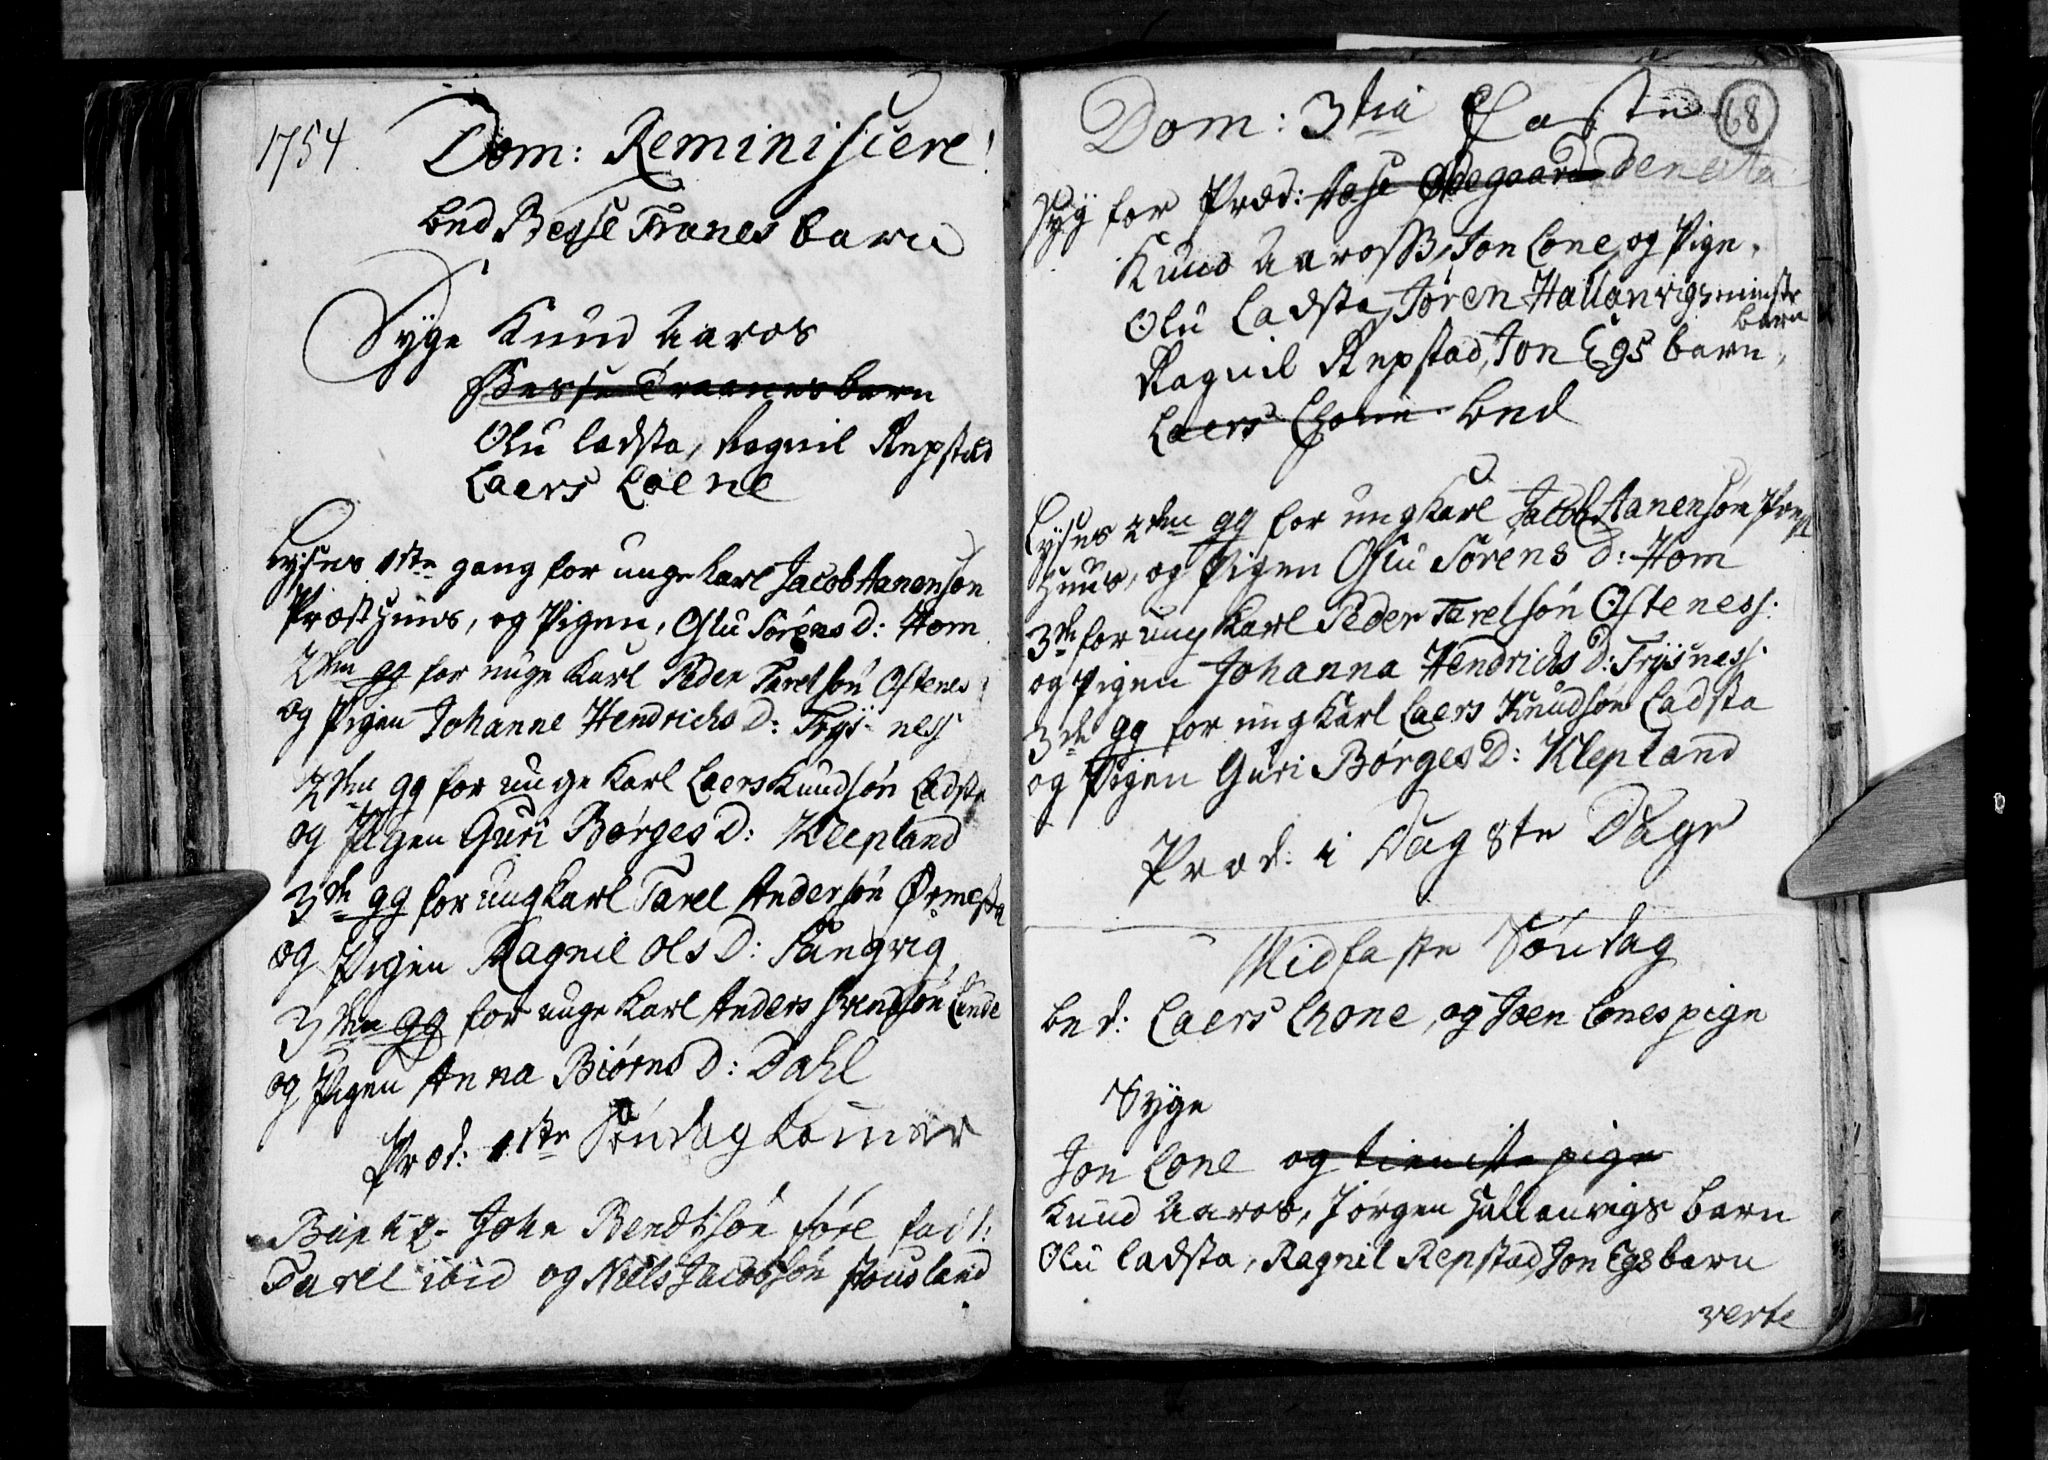 1754. Dom: Reminiscere!
bed Besse Tranes barn
Syge Knud Aaros
Besse Traanes barn
Olu Ladsta, Ragnil Repstad
Laers Loene
Lyses 1ste gang for unge karl Jacob Aanensøn
Præsthuus, og Pigen, Olu Sørens D: Hom
2den gg for unge Karl Peder Tarelsøn Oftenes
og Pigen Johanne Hendrichs D: Trysness
2den gg for unge Karl Laers Knudsøn Ladsta
og Pigen Guri Børges D: Klepland
3de gg for ung Karl Tarel Andersøn
og Pigen Ragnil Ols D: Langvig
3den gg for unge Karl Anders Svendsøn Linde
og Pigen Anna Biørns D: Dahl
Præd: 1ste Søndag komer
John Bendtsøn fad:
Tarel ibid og Niels Jacobsøn Stousland
68
Dom: 3tia Faste
Syg for Præd: Aase Ødegaard
Knud Aaross, Jon Lone, og Pige,
Olu Ladsta, Jøren Hallanvigs minste
barn
Ragnil Repstad, Jon Egs barn,
Laers Lhone bed
Lyses 2den gg for ung Karl Jacob Aanensøn Præst
Huus, og Pigen Olu Sørens D: Hom
3de for ung Karl Peder Tarelsøn Ofteness:
og Pigen Johanna Hendrichs D: Trysness:
3de gg for ung Karl Laers Knudsøn Ladsta
og Pigen Guri Børges D: Klepland
Præd: i Dag 8te Dage
Midfaste Søndag
bed: Laers Lhone, og Joen Lones pige
Syge
Jon Lone og tieniste pige
Knud Aaros, Jørgen Hallanvigs barn
Olu Ladsta, Ragnil Repstad, Jon Egs barn
verte